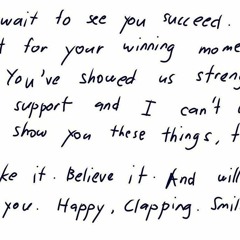 wait to see you succeed.
for your winning mome
You've showed us streng
support and I can't
show you these things, t
ke it. Believe it. And will
you. Happy, Clapping. Smil